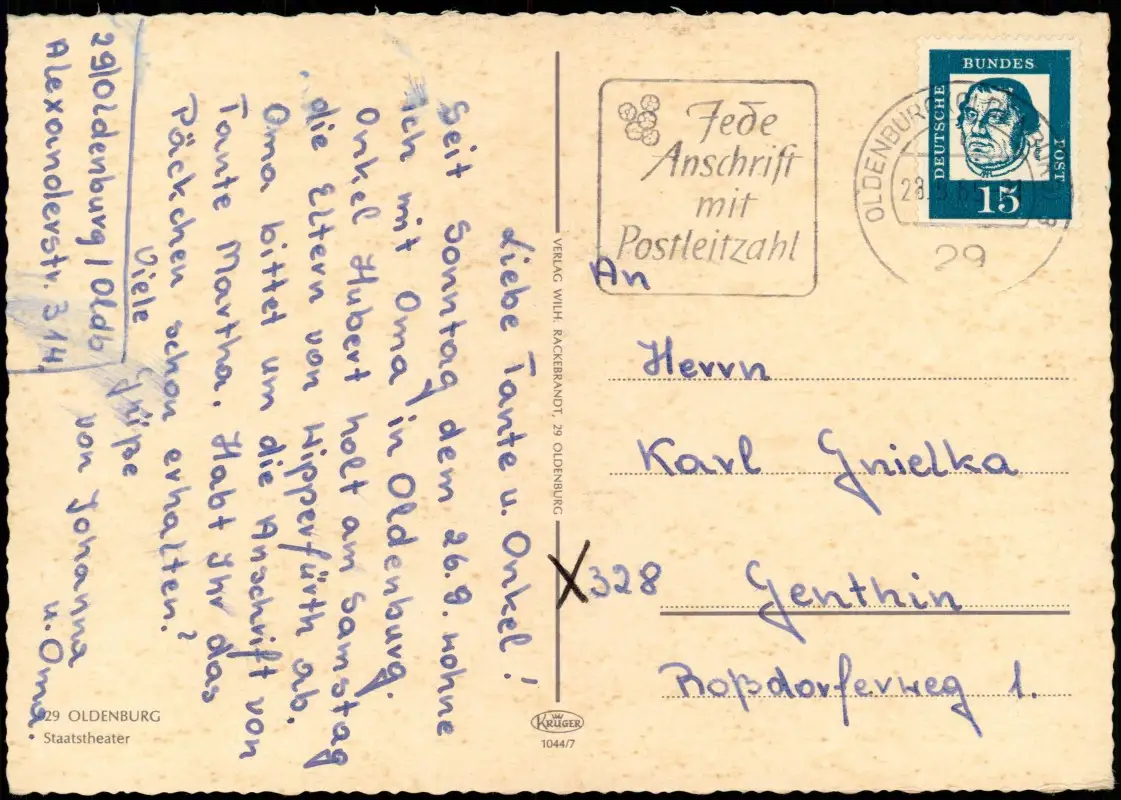 29/Oldenburg / Oldb
Alexanderstr. 314.
Liebe Tante u. Onkel!
Seit Sonntag dem 26.9. wohne
ich mit Oma in Oldenburg.
Onkel Hubert holt am Samstag
die Eltern von Wipperfürth ab.
Oma bittet um die Anschrift von
Tante Martha. Habt Ihr das
Päckchen schon erhalten?
Viele Grüße
von Johanna
u. Oma.
929 OLDENBURG
Staatstheater
VERLAG WILH. RACKEBRANDT, 29 OLDENBURG
KRÜGER
1044/7
Jede
Anschrift
mit
Postleitzahl
OLDENBURG
29
DEUTSCHE
BUNDES
POST
15
An
Herrn
Karl Gnielka
X 328 Genthin
Roßdorferweg 1.